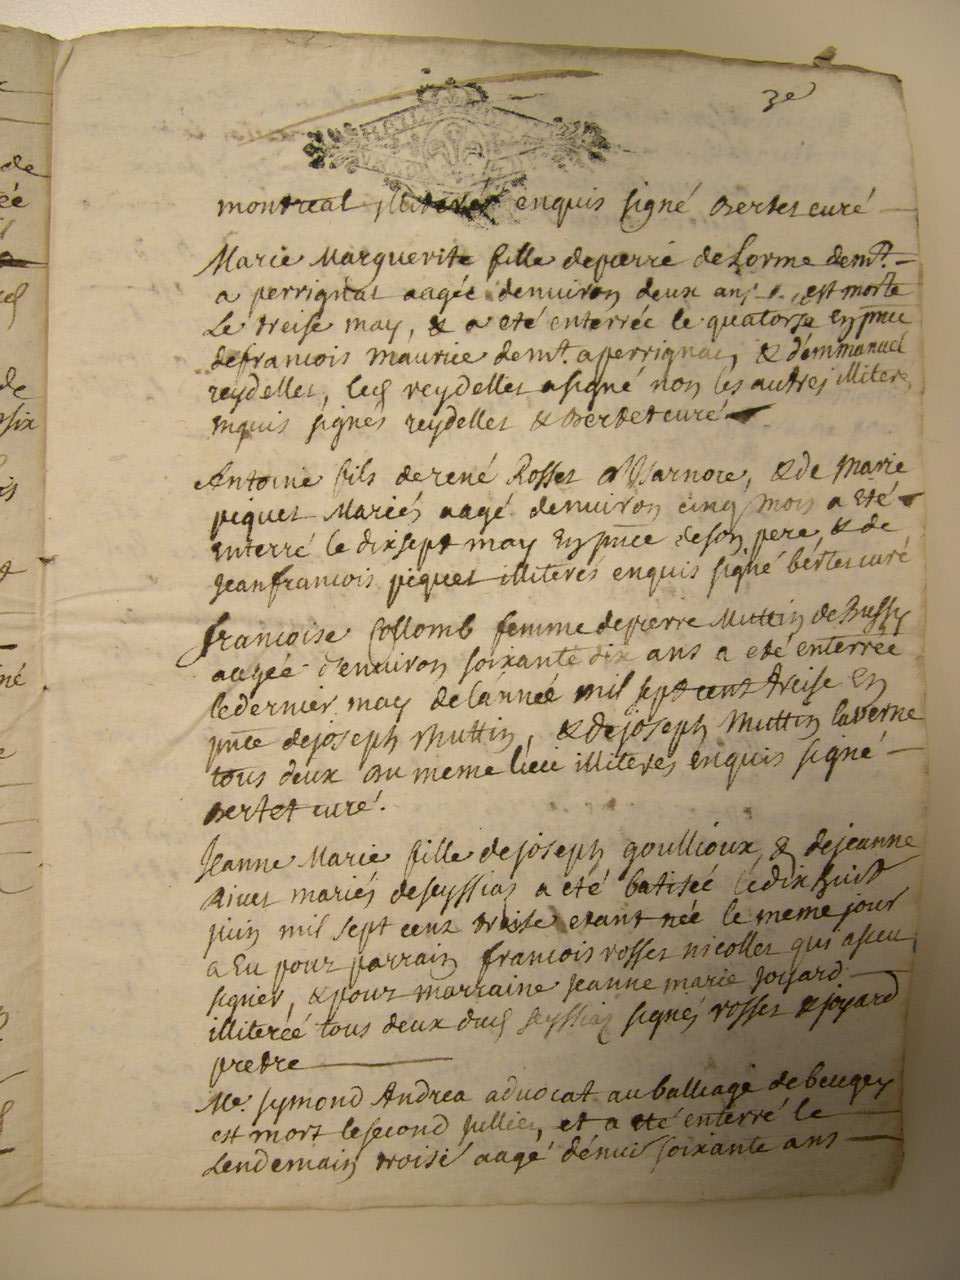 3e
montreal enquis signé Bertet curé
Marie Marguerite fille de pierre de Lorme demt.
a perrignat aagée denuiron deux ans est morte
Le treise may, & a eté enterrée le quatorse En pnce
de francois Maurice demt. a perrignat, & d'emmanuel
reydellet, led reydellet a signé non les autres illiteres
enquis signés reydellet & Bertet curé
Antoine fils de rené Rosset, & de Marie
piquet Mariés aagé denuiron cinq mois a eté
enterré le dixsept may En pnce de son pere, & de
jean francois piquet illiteres enquis signé bertet curé
francoise Collomb femme de pierre Muttin de Bussy
aagée d'enuiron soixante dix ans a eté enterrée
le dernier may de l'année mil sept cent treise En
pnce de joseph Muttin, & de joseph Muttin laverne
tous deux du meme lieu illiteres enquis signé
Bertet curé.
Jeanne Marie fille de joseph goullioux, & de jeanne
Rivet mariés de seyssiat a eté batisée le dix huit
juin mil sept cent treise etant née le meme jour
a Eu pour parrain francois rosset nicollet qui a sceu
signer, & pour marraine jeanne marie Joyard
illiterée tous deux dud seyssiat signés rosset & joyard
pretre
Me. symond Andrea advocat au balliage de beugey
est mort le second juillet, et a eté enterré le
Lendemain troisé aagé d'énui soixante ans